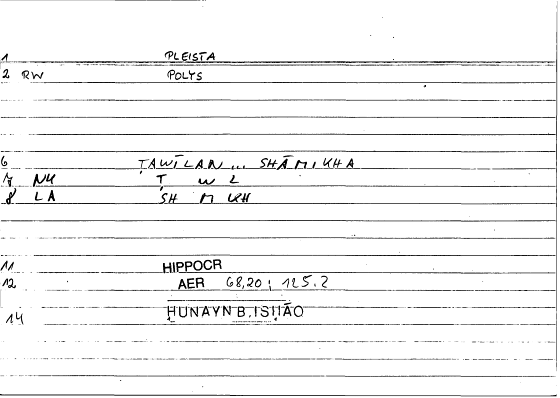 1 PLEISTA
2 RW POLYS
6 ṬAWĪLAN ... SHĀMIKHA
7 NK Ṭ W L
8 LA SH M KH
11 HIPPOCR
12 AER 68,20; 125.2
14 ḤUNAYN B. ISḤĀQ